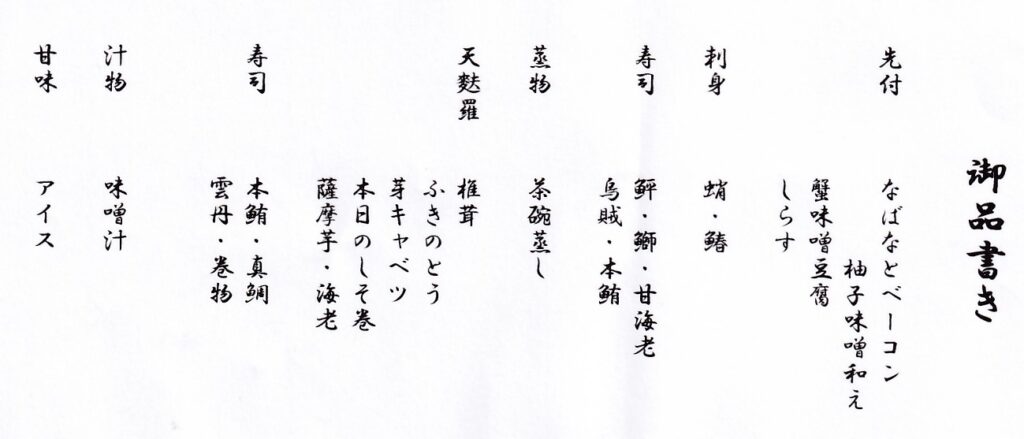 御品書き
先付 なばなとベーコン
柚子味噌和え
蟹味噌豆腐
しらす
刺身 蛸・鰆
寿司 鮃・鰤・甘海老
烏賊・本鮪
蒸物 茶碗蒸し
天麩羅 椎茸
ふきのとう
芽キャベツ
本日のしそ巻
薩摩芋・海老
寿司 本鮪・真鯛
雲丹・巻物
汁物 味噌汁
甘味 アイス